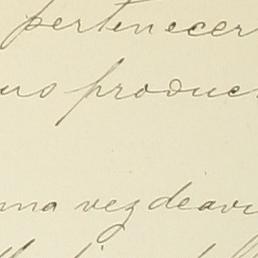 pertenecer
us produc
una vez deav